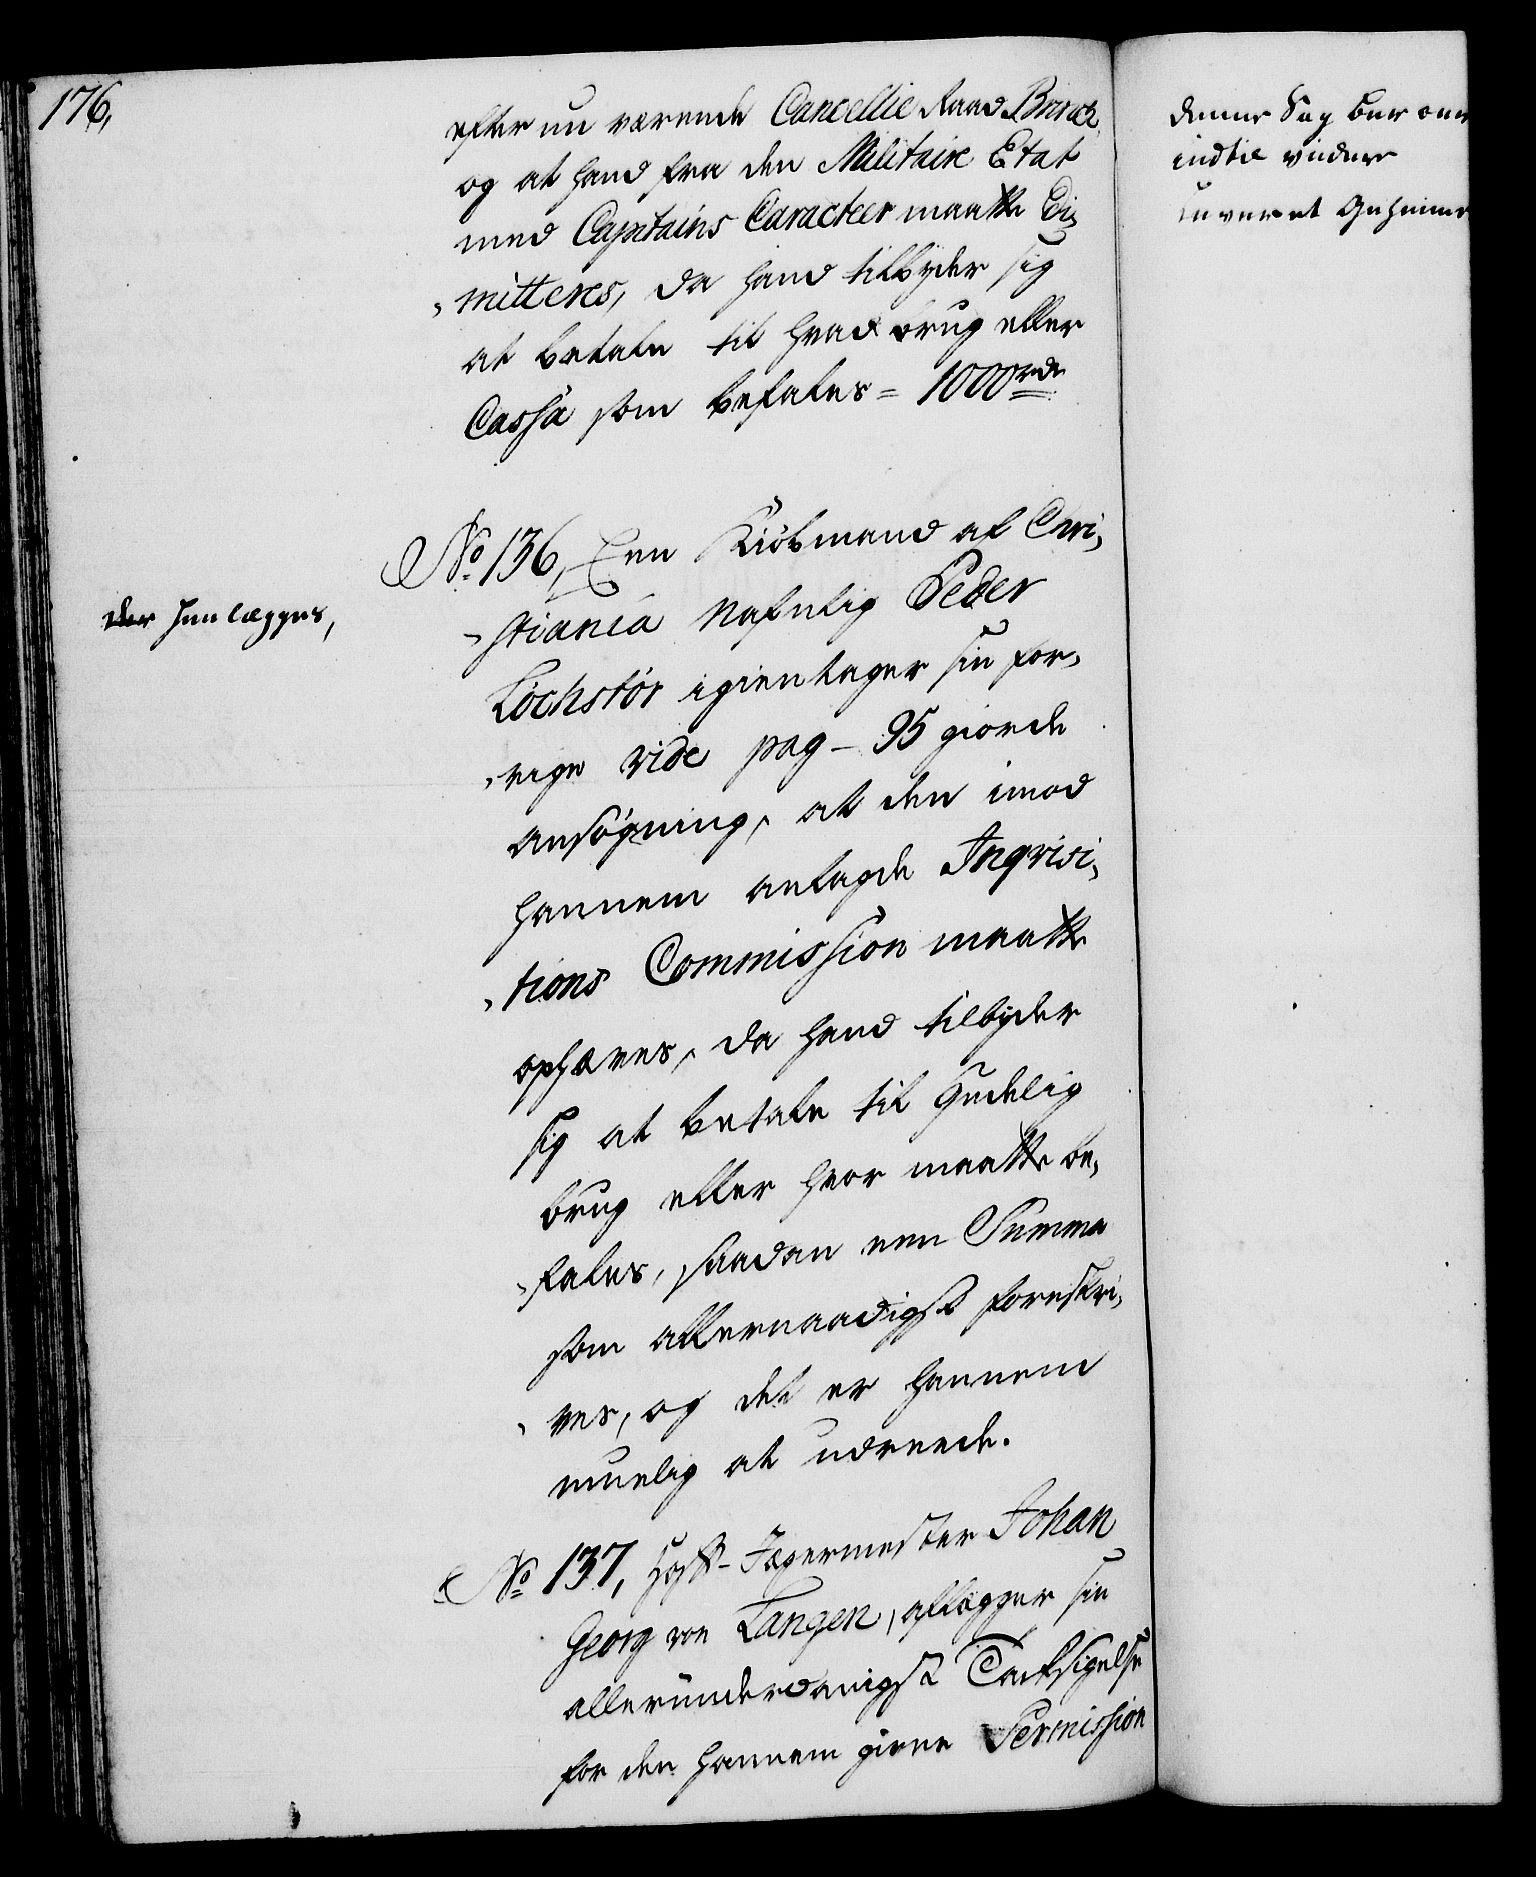 176,
efter nu værende Cancellie Raad
og at hand fra den Militaire Etat
med Capitains Caracteer maatte Di-
mitteres, da hand tilbyder sig
at betale til hvad brug eller
Cassa som befales = 1000 rdr
No. 136, Een Kiöbmand af Chri-
stiania nafnlig Peder
Löchstör igientager sin for-
rige vide pag - 95 giorde
ansögning, at den imod
hannem antagde Inqvisi-
tions Commission maatte
ophæves, da hand tilbyder
sig at betale til Gudelig
brug eller hvor maatte be-
fales, saadan een Summa
som allernaadigst foreskri-
ves, og det er hannem
muelig at udreede.
No. 137, Hoff-Jægermester Johan
Georg von Langen, aflægger sin
allerunderdanigst Tacksigelse
for den hannem givne Permission
henlægges,
denne Sag
indtil videre